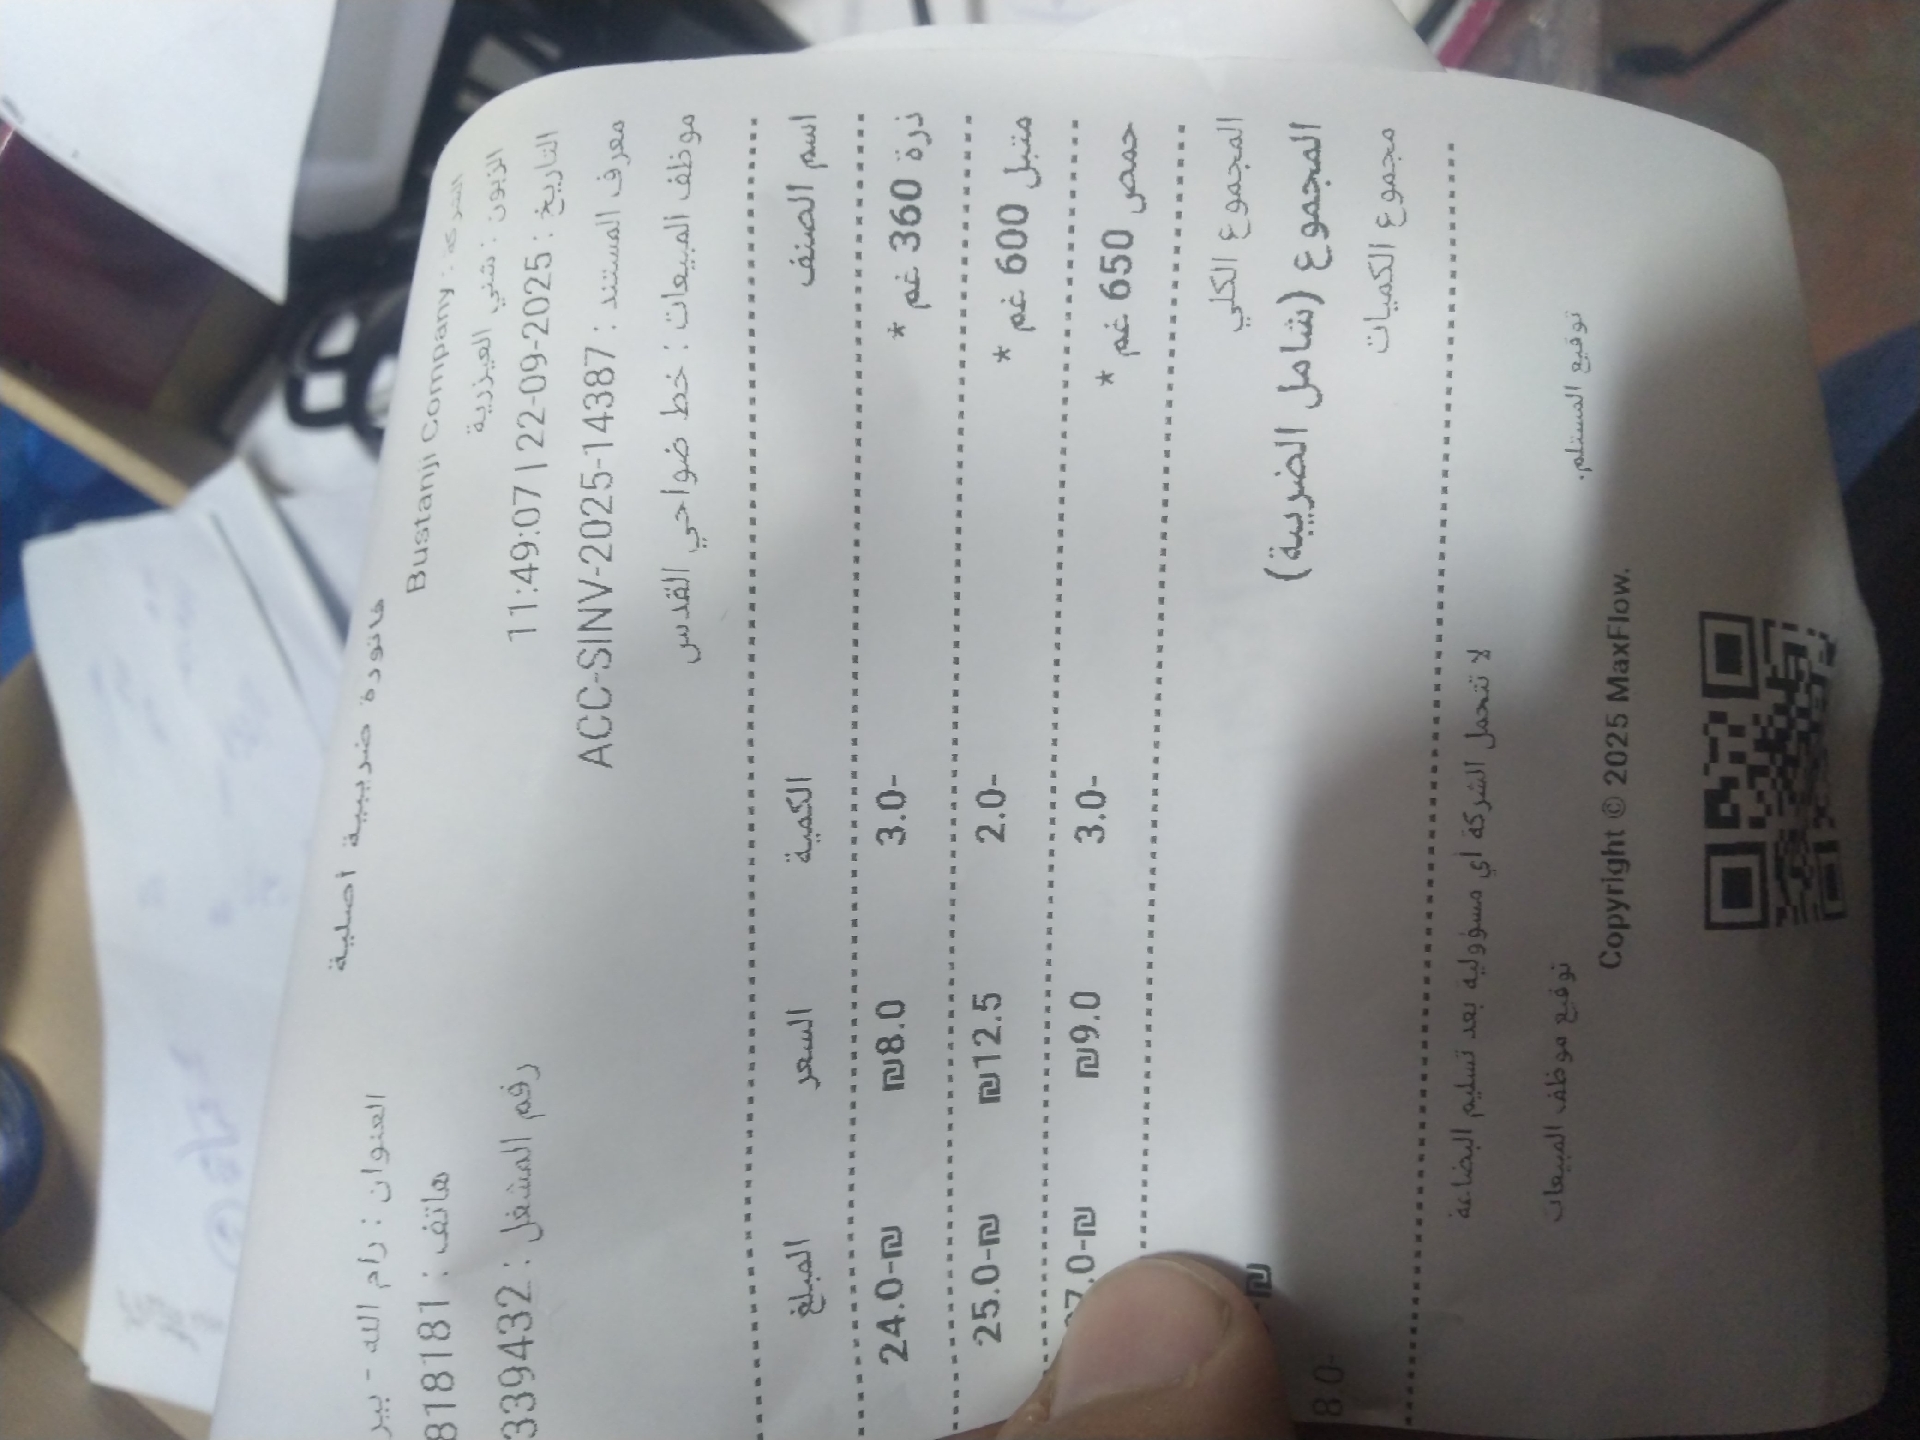 فاتورة ضريبية أصلية
الشركة : Bustanji Company
العنوان : رام الله - بير
الزبون : شني العيزرية
هاتف : 818181
التاريخ : 2025-09-22 | 11:49:07
رقم المشغل : 339432
معرف المستند : ACC-SINV-2025-14387
موظف المبيعات : خط ضواحي القدس
اسم الصنف الكمية السعر المبلغ
ذرة 360 غم * 3.0- ₪8.0 24.0-₪
متبل 600 غم * 2.0- ₪12.5 25.0-₪
حمص 650 غم * 3.0- ₪9.0 7.0-₪
المجموع الكلي
المجموع (شامل الضريبة) ₪
مجموع الكميات 8.0-
لا تتحمل الشركة أي مسؤوليه بعد تسليم البضاعة
توقيع المستلم. توقيع موظف المبيعات
Copyright © 2025 MaxFlow.